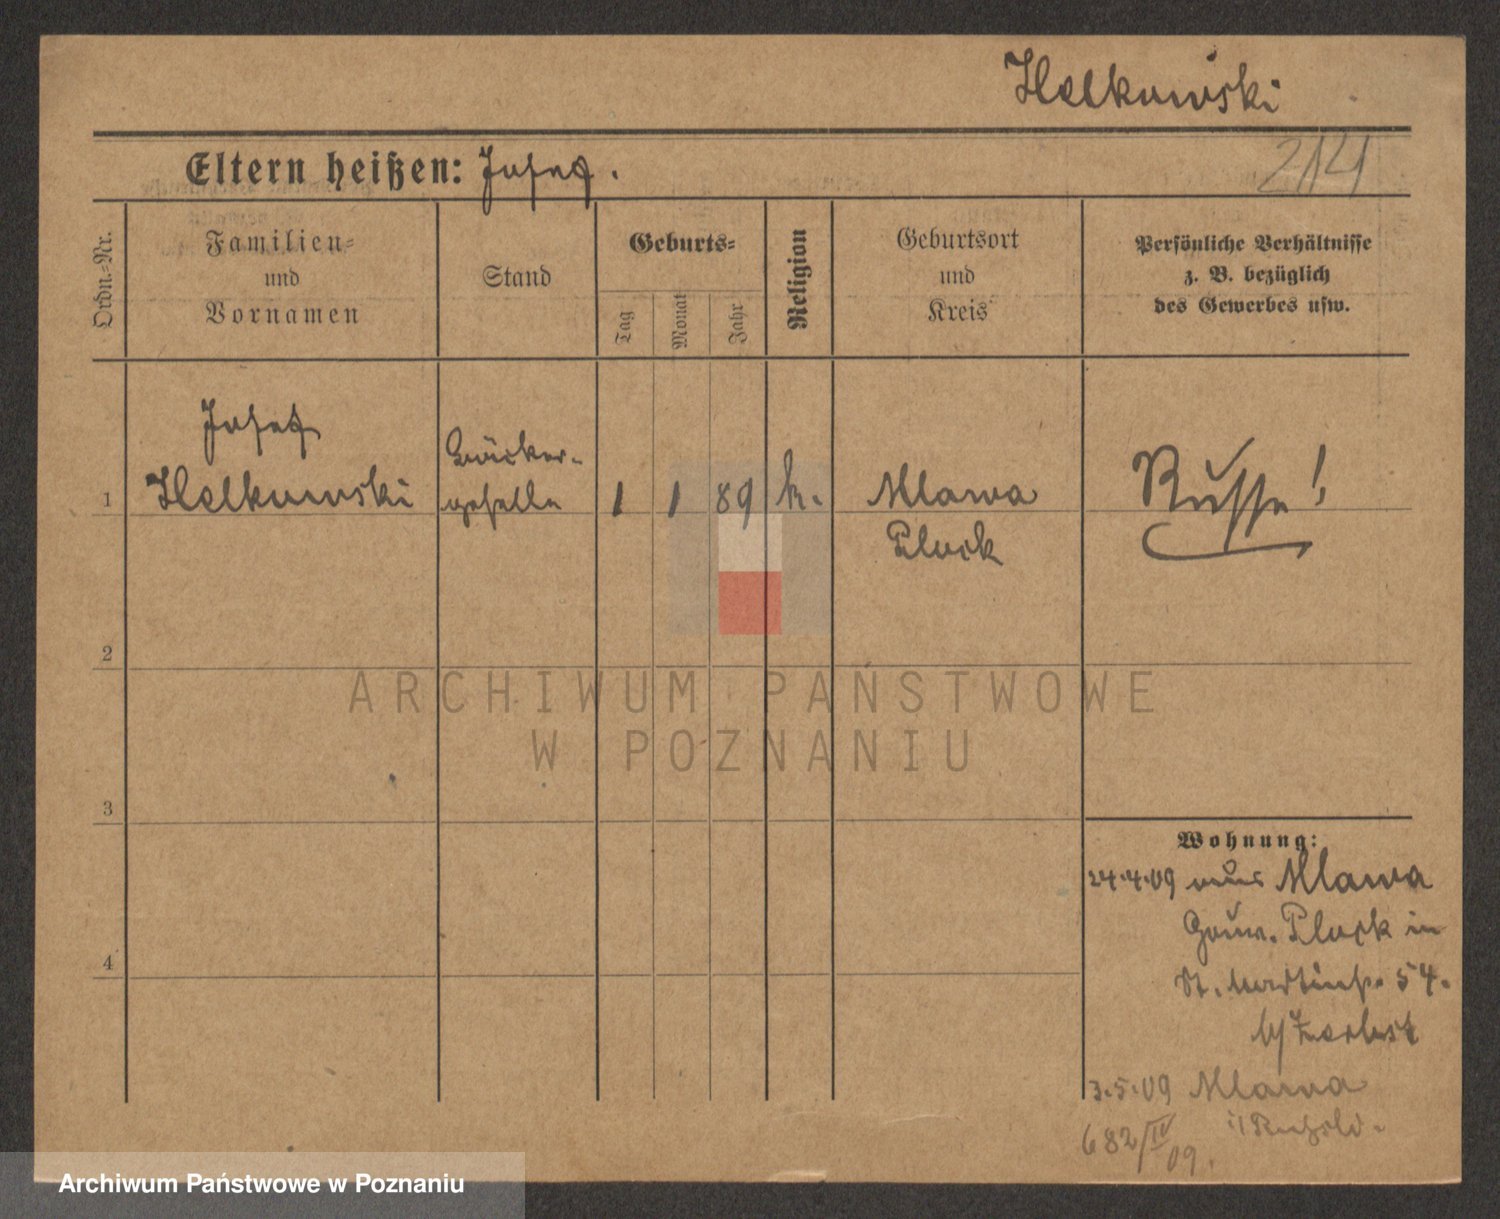 Helkowski
Eltern heißen: Josef.
214
Ordn.-Nr.
Familien-
und
Vornamen
Stand
Geburts-
Tag
Monat
Jahr
Religion
Geburtsort
und
Kreis
Persönliche Verhältnisse
z. B. bezüglich
des Gewerbes usw.
1
Josef
Helkowski
Bäcker-
geselle
1 1 89 k.
Mlawa
Plock
Russe!
2
3
4
Wohnung:
24.4.09 aus Mlawa
Gouv. Plock in
St. Martinstr. 54.
b/ Zerbst
3.5.09 Mlawa
682/IV 09.
ARCHIWUM PAŃSTWOWE
W POZNANIU
Archiwum Państwowe w Poznaniu